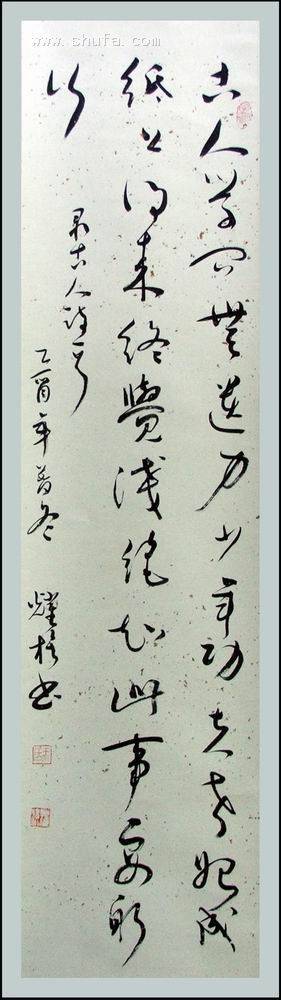 www.shufa.com
古人学问無遗力少年功夫老始成
紙上得来終覺淺绝知此事要躬
行
录古人诗一首
乙酉年冬
耀書